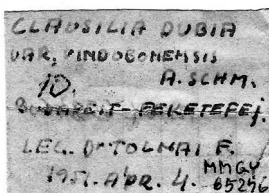 CLAUSILIA DUBIA
VAR. VINDOBONENSIS
A. SCHM.
BUDAPEST - FEKETEFEJ.
LEG. Dr TOLMAI F.
1951. APR. 4.
MMGY
65276